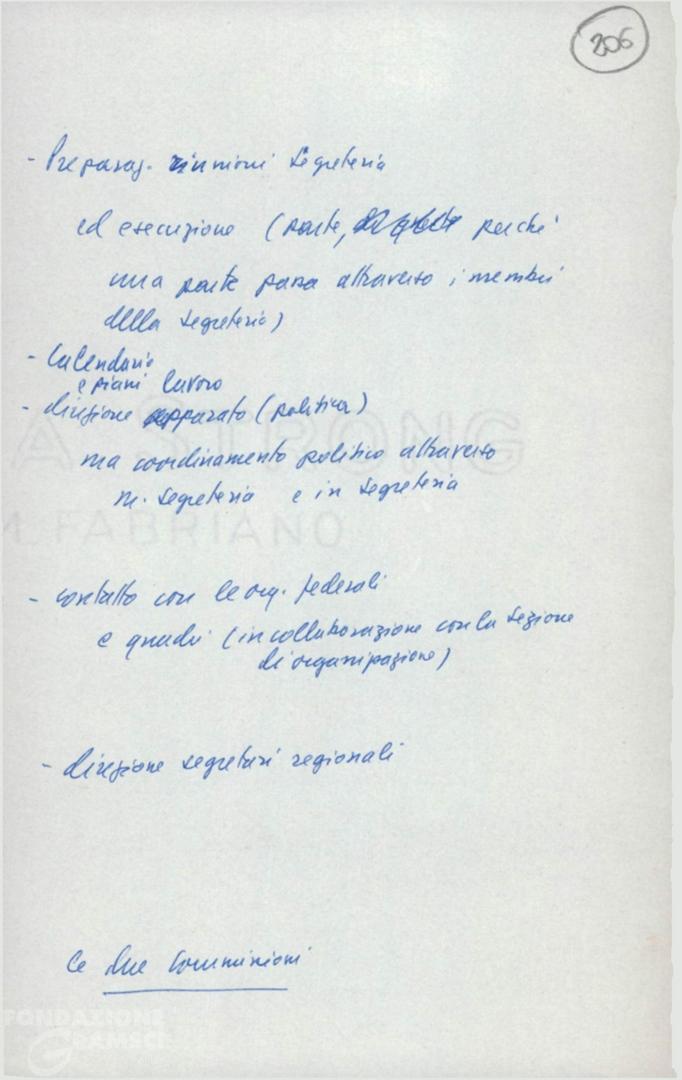 206
- Preparaz. riunioni segreteria
ed esecuzione (parte, perché
una parte passa attraverso i membri
della segreteria)
- Calendario
e piani lavoro
- direzione apparato (politica)
ma coordinamento politico attraverso
m. segreteria e in segreteria
- contatto con le org. federali
e quadri (in collaborazione con la sezione
di organizzazione)
- direzione segretari regionali
le due commissioni
A STRONG
M. FABRIANO
FONDAZIONE
GRAMSCI